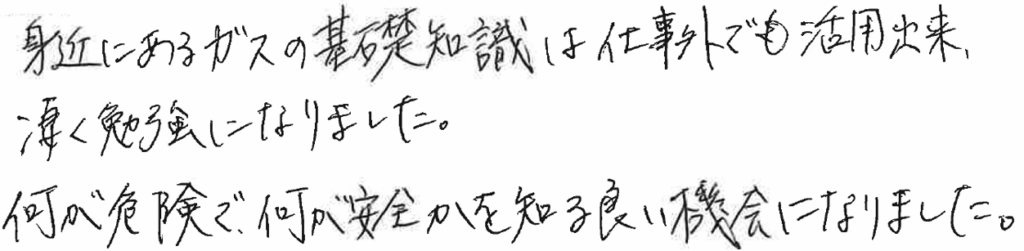 身近にあるガスの基礎知識は仕事外でも活用出来、
凄く勉強になりました。
何が危険で、何が安全かを知る良い機会になりました。